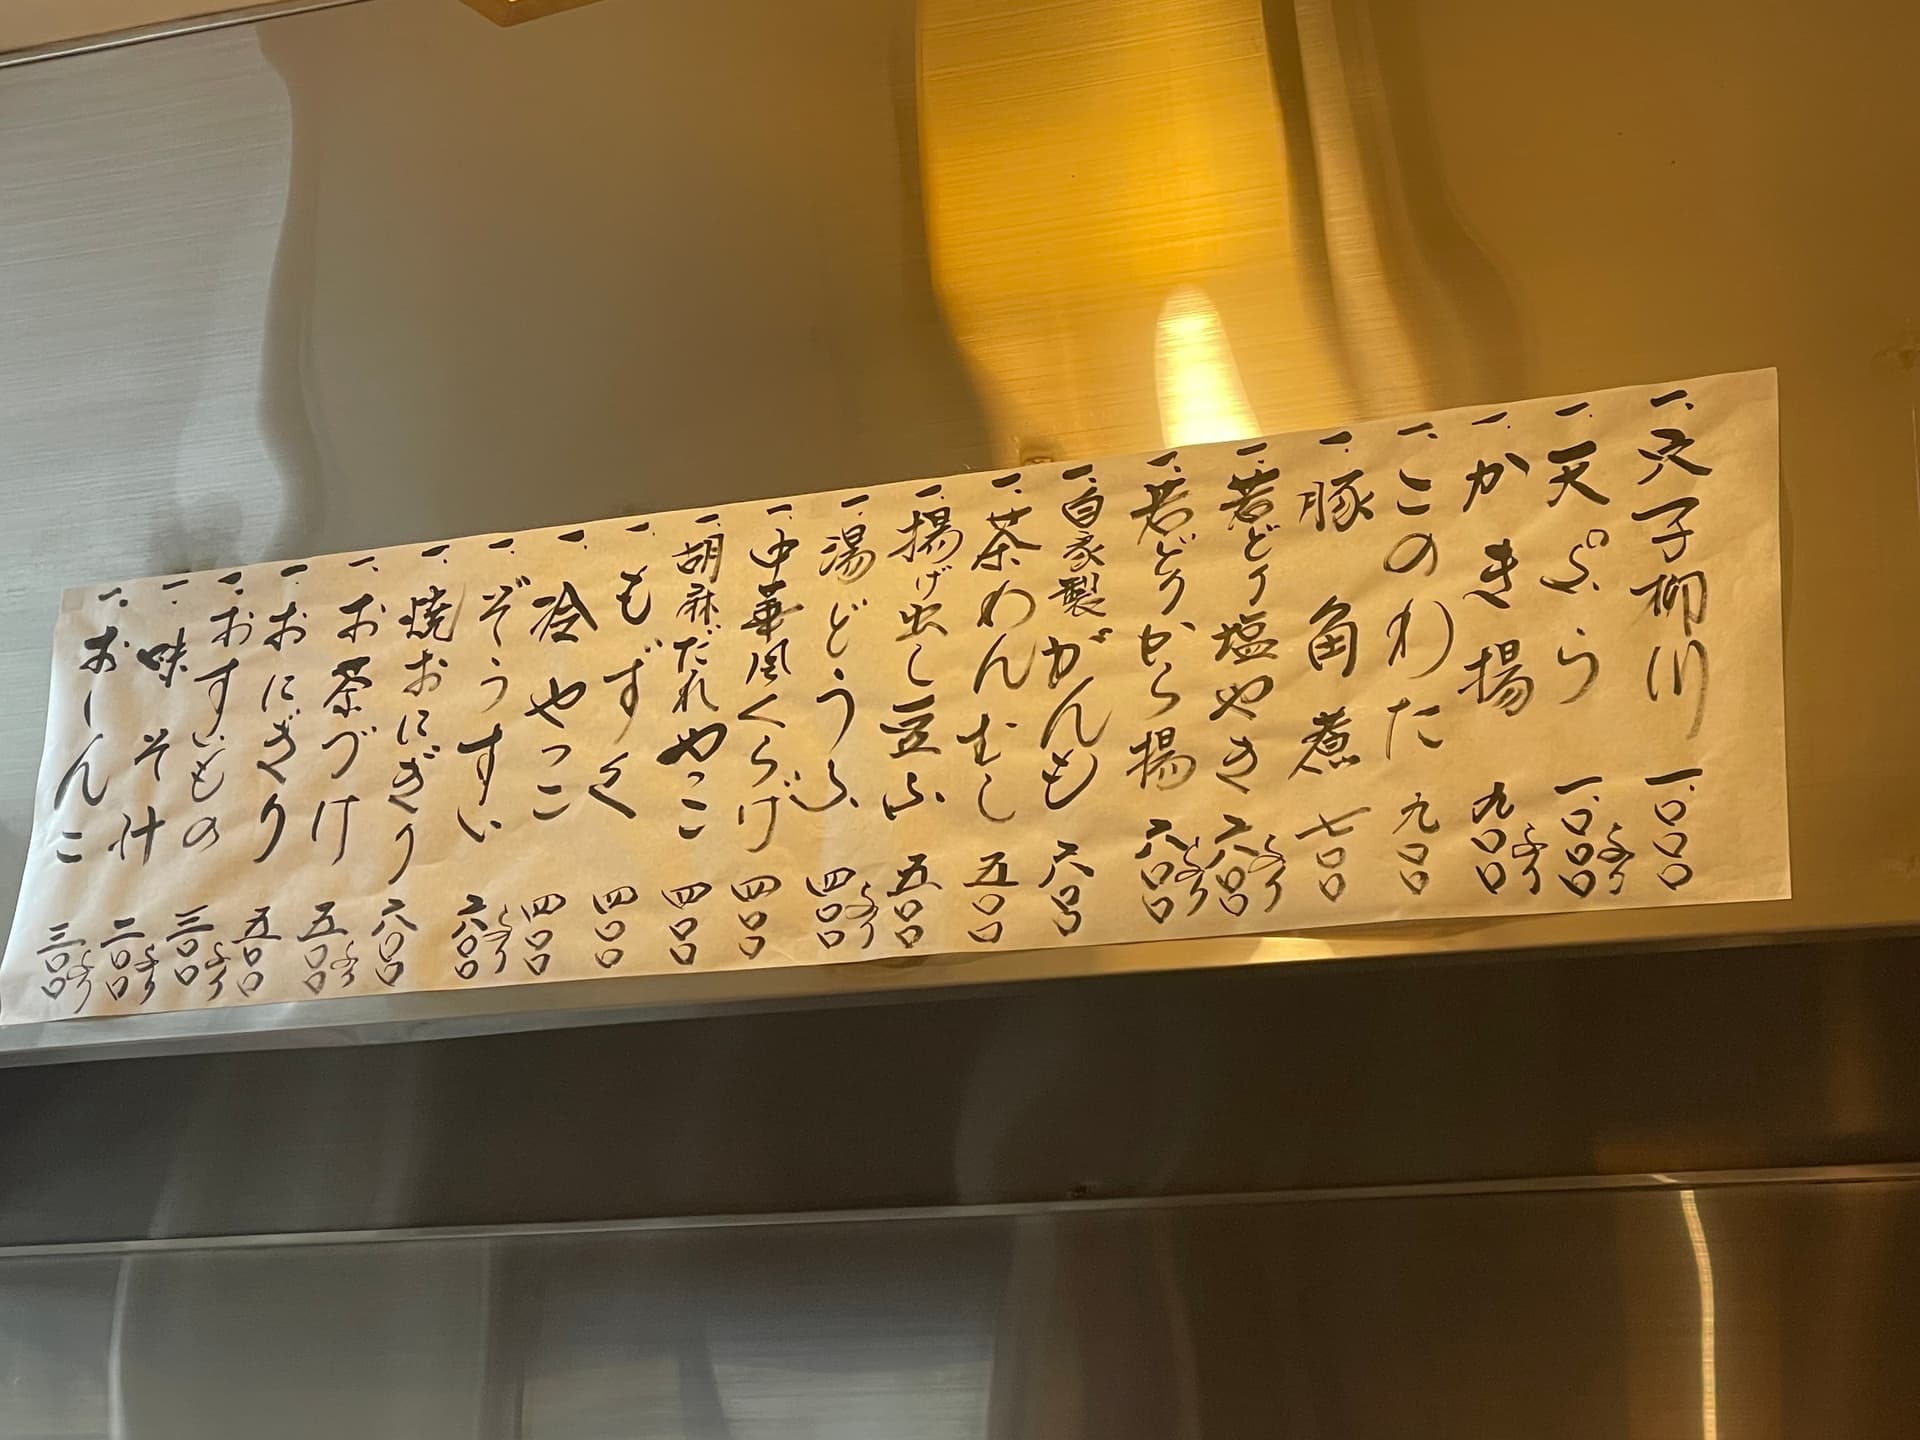 一、穴子柳川 一、〇〇〇
一、天ぷら 一、〇〇〇より
一、かき揚 九〇〇より
一、このわた 九〇〇
一、豚角煮 七〇〇
一、若どり塩やき 六〇〇より
一、若どりから揚 六〇〇より
一、自家製がんも 六〇〇
一、茶わんむし 五〇〇
一、揚げ出し豆ふ 五〇〇
一、湯どうふ 四〇〇より
一、中華風くらげ 四〇〇
一、胡麻だれやっこ 四〇〇
一、もずく 四〇〇
一、冷やっこ 四〇〇
一、ぞうすい 六〇〇より
一、焼おにぎり 六〇〇
一、お茶づけ 五〇〇より
一、おにぎり 五〇〇
一、おすいもの 三〇〇より
一、味そ汁 二〇〇より
一、おしんこ 三〇〇より